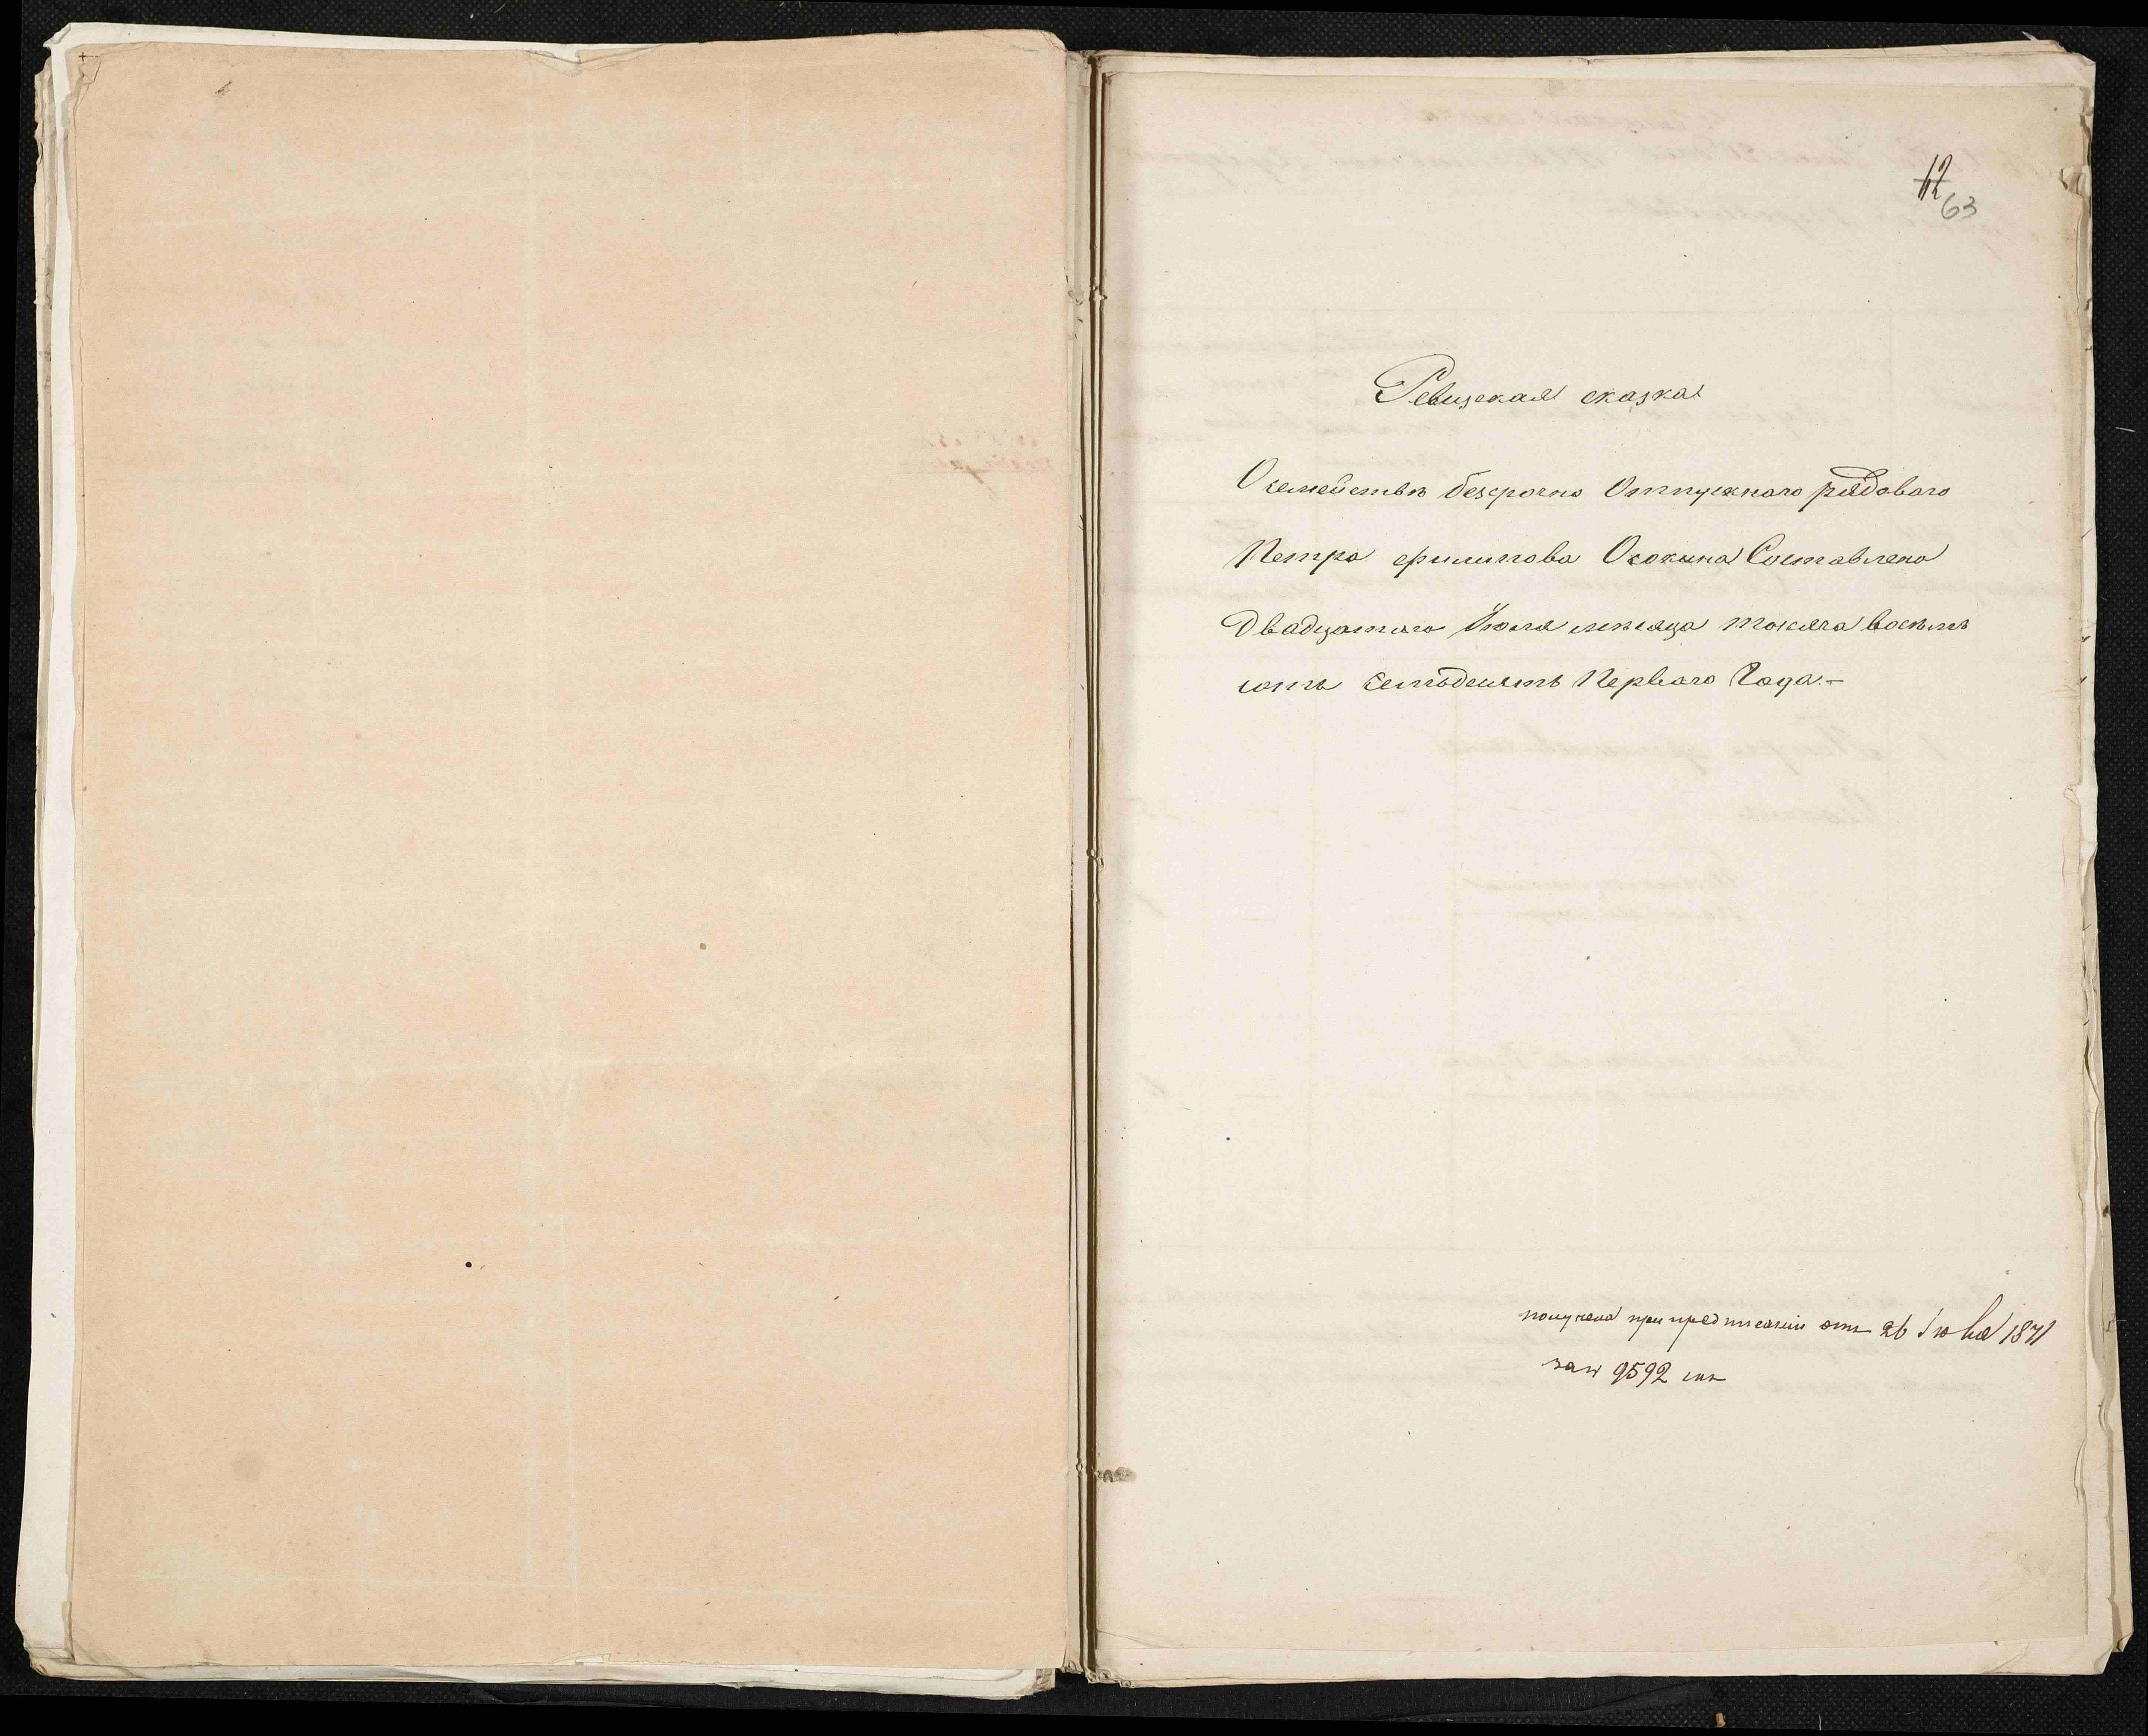 12
63
Ревизская сказка
О семействѣ безсрочно Отпускнаго рядоваго
Петра филипова Ококина Составлена
Двадцатаго Июля мѣсяца тысяча восѣмъ
сотъ семъдесятъ Перваго Года.-
получена при предписании отъ 26 Іюля 1871
за № 9592